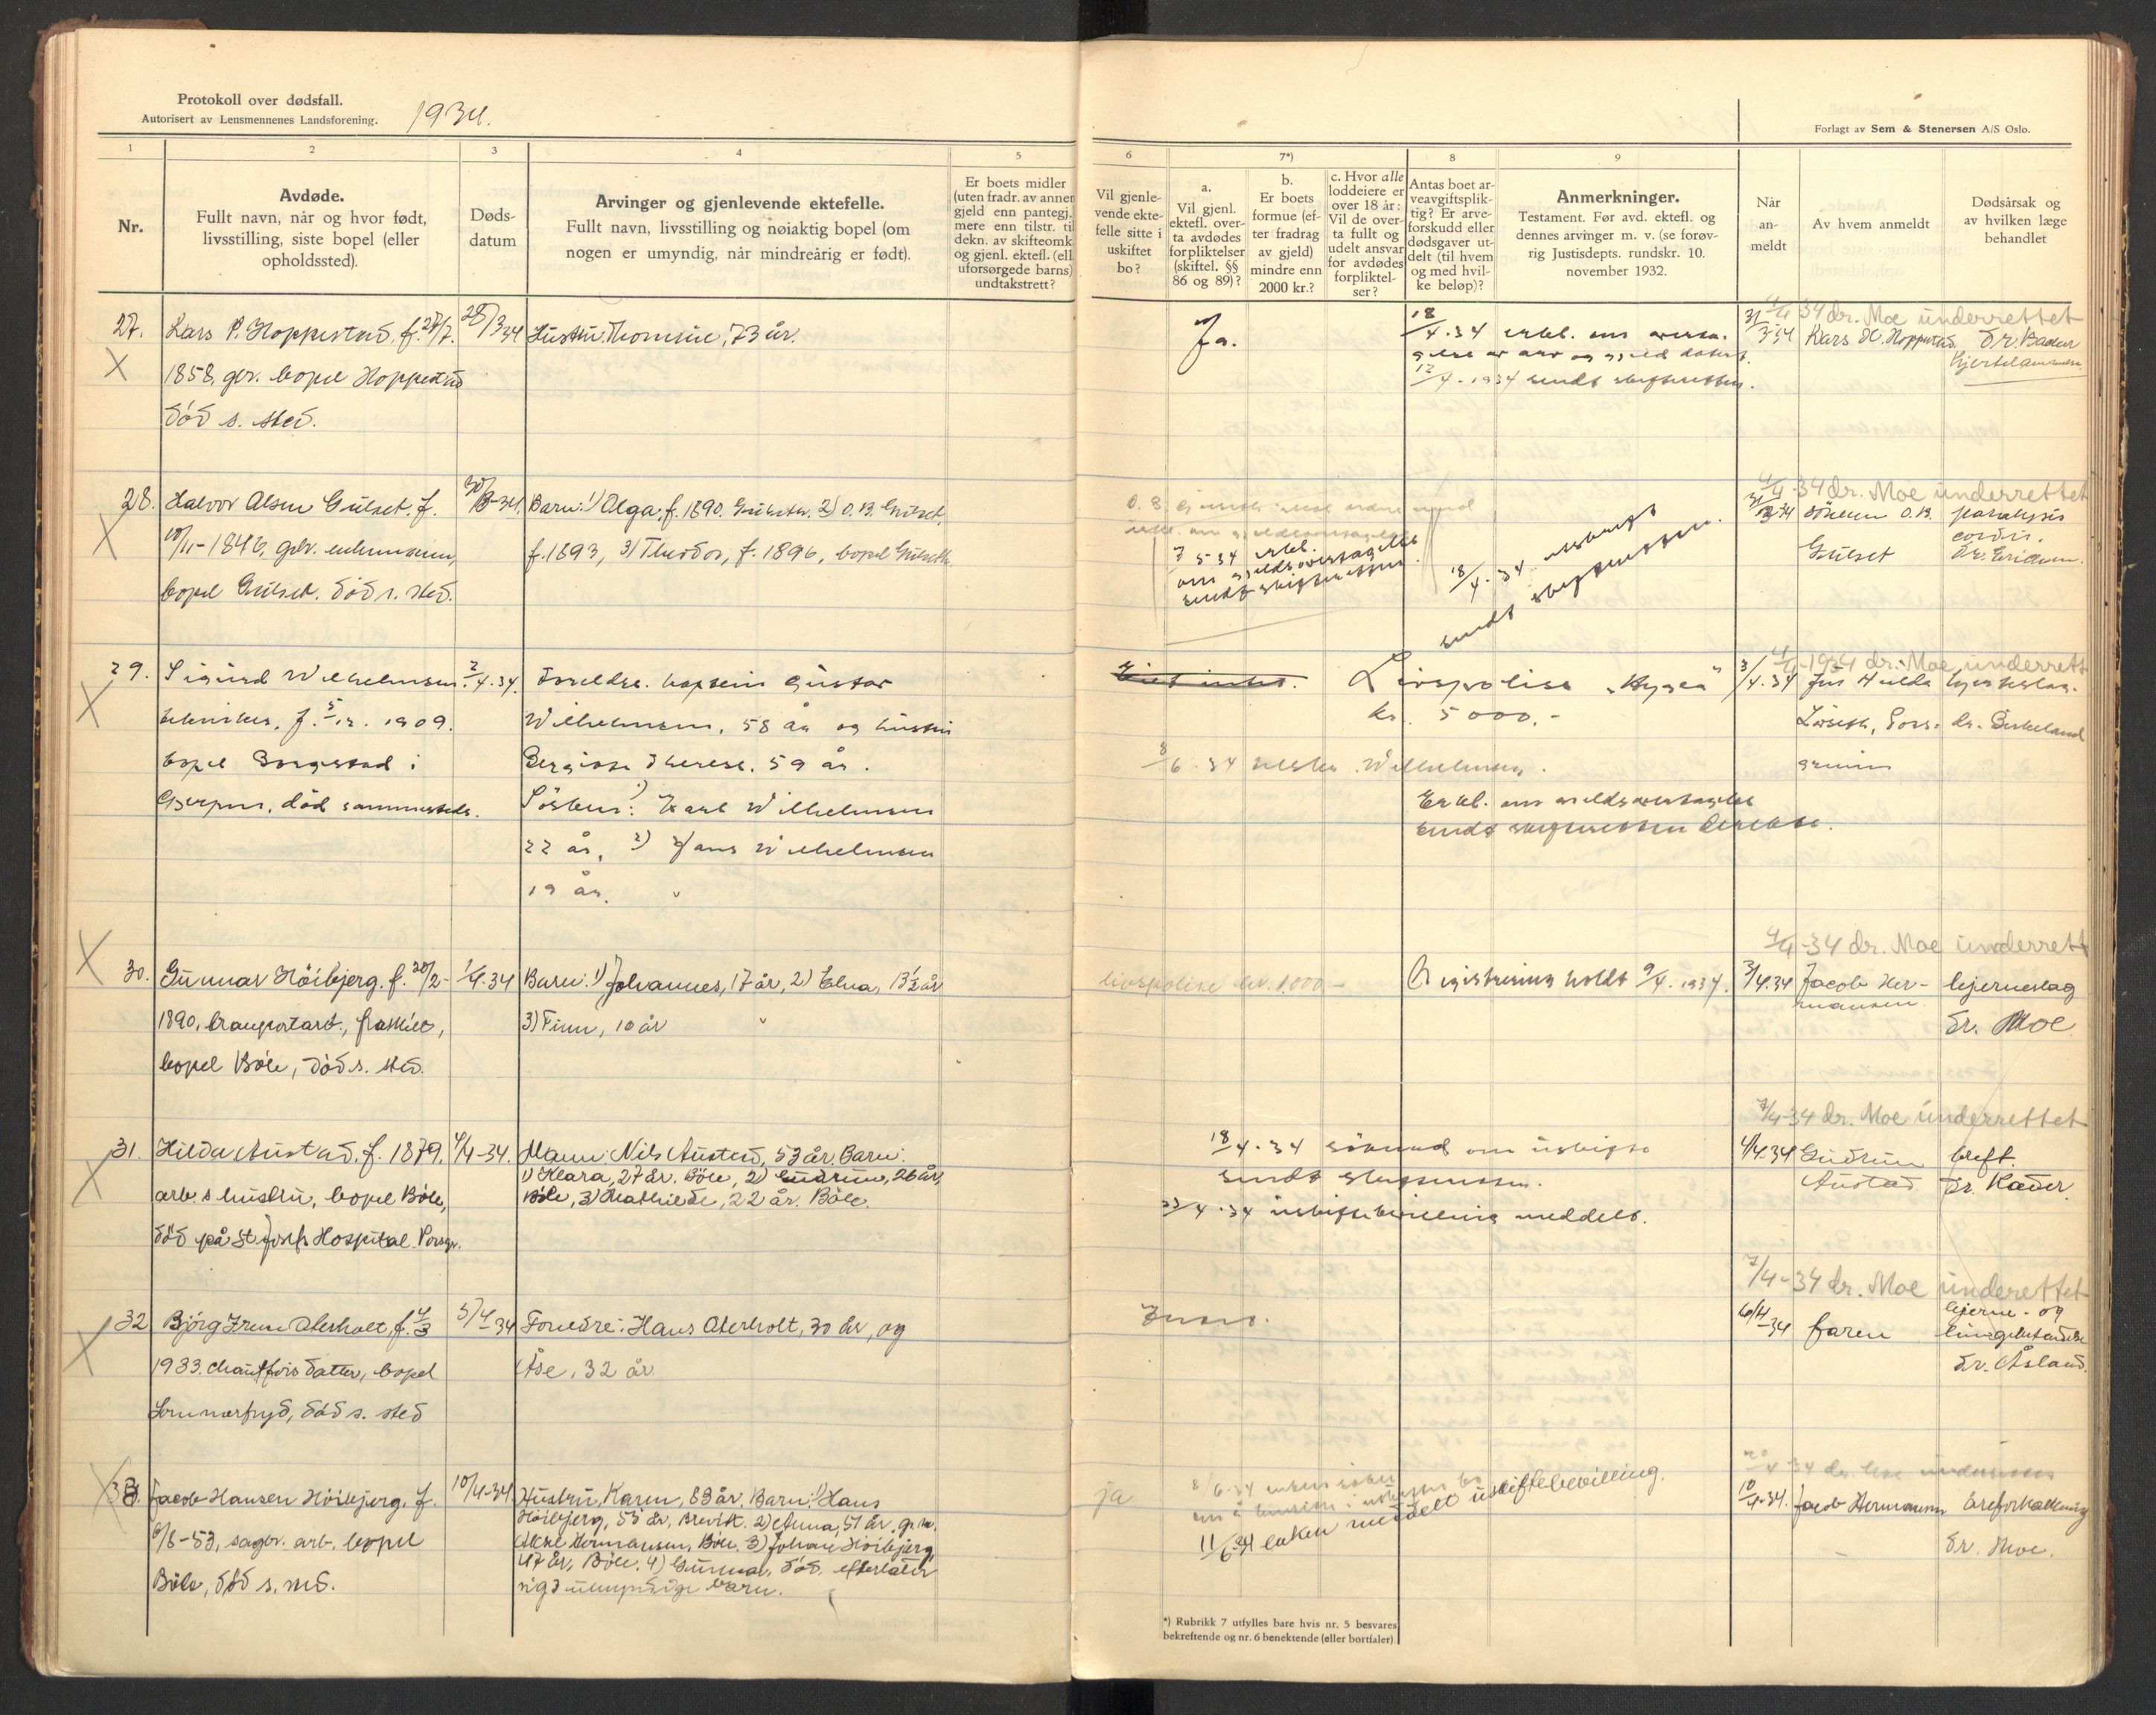 Protokoll over dødsfall.
Autorisert av Lensmennenes Landsforening.
1934.
Forlagt av Sem & Stenersen A/S Oslo.
1
2
3
4
5
6
7*)
8
9
Nr.
Avdøde.
Fullt navn, når og hvor født,
livsstilling, siste bopel (eller
opholdssted).
Døds-
datum
Arvinger og gjenlevende ektefelle.
Fullt navn, livsstilling og nøiaktig bopel (om
nogen er umyndig, når mindreårig er født).
Er boets midler
(uten fradr. av annen
gjeld enn pantegj.
mere enn tilstr. til
dekn. av skifteomk.
og gjenl. ektefl. (ell.
uforsørgede barns)
undtakstrett?
Vil gjenle-
vende ekte-
felle sitte i
uskiftet
bo?
a.
Vil gjenl.
ektefl. over-
ta avdødes
forpliktelser
(skiftel. §§
86 og 89)?
b.
Er boets
formue (ef-
ter fradrag
av gjeld)
mindre enn
2000 kr.?
c. Hvor alle
loddeiere er
over 18 år:
Vil de over-
ta fullt og
udelt ansvar
for avdødes
forpliktel-
ser?
Antas boet ar-
veavgiftsplik-
tig? Er arve-
forskudd eller
dødsgaver ut-
delt (til hvem
og med hvil-
ke beløp)?
Anmerkninger.
Testament. Før avd. ektefl. og
dennes arvinger m. v. (se forøv-
rig Justisdepts. rundskr. 10.
november 1932.
Når
an-
meldt
Av hvem anmeldt
Dødsårsak og
av hvilken læge
behandlet
27.
Lars P. Hoppestad, f. 27/7.
1858, gbr. bopel Hoppestad
død s. sted.
28/3 34
Hustru Thomine, 73 år.
Ja.
18/4.34 erkl. om overta-
gelse av arv og gjeld
12/4-1934 sendt skifteretten.
4/4 34 dr. Moe underrettet
31/3-34
Lars H. Hoppestad.
dr. Bader
28.
Halvor Olsen Gulset, f.
10/11-1846, gbr. enkemann,
bopel Gulset. død s. sted.
30/3-34.
Barn: 1) Olga, f. 1890. Gulseth. 2) O.B. Gulset,
f. 1893, 3) Theodor, f. 1896, bopel Gulseth
7 5-34 erkl.
om gjeldsovertagelse
sendt skifteretten.
18/4.34
sendt skifteretten.
4/4-34 dr. Moe underrettet
31/3-34
sönnen O.B.
Gulset
paralysis
cordis.
29.
Sigurd Wilhelmsen.
tekniker, f. 5-12. 1909.
bopel Borgestad i
Gjerpen, död sammesteds.
2/4.34.
Foreldre. kaptein Gustav
Wilhelmsen, 58 år og hustru
Bergitte Therese. 59 år.
Söskend: 1) Karl Wilhelmsen
22 år, 2) Hans Wilhelmsen
19 år. "
Eiet intet.
Livspolise "Hygea"
kr. 5000.-
8/6-34 Wilhelmsen.
Erkl. om gjeldsovertagelse
sendt skifteretten direkte.
4/4-1934 dr. Moe underrett
3/4.34
hjerteslag.
dr. Birkeland
30.
Gunnar Höibjerg. f. 20/2-
1890, transportarb., fraskilt,
bopel Böle, död s. sted.
1/4.34
Barn: 1) Johannes, 17 år, 2) Elna, 13½ år
3) Finn, 10 år "
livspolise kr. 1.000-
Registrering holdt 9/4. 1934.
4/4-34 dr. Moe underrett
3/4.34
Jacob Her-
mansen.
hjerneslag
dr. Moe
31.
Hilda Austad, f. 1879.
arb.s hustru, bopel Böle,
död på St. Josefs Hospital Porsgr.
4/4-34.
Mann: Nils Austad, 53 år. Barn:
1) Klara, 27 år. Böle, 2) Gudrun, 26 år,
Böle, 3) Mathilde, 22 år. Böle.
18/4.34 söknad om uskifte
sendt skifteretten.
23/4.34 uskiftebevilling meddelt.
7/4-34 dr. Moe underrettet
4/4-34
Gudrun
Austad
kreft.
32
Björg Irene Aterholt, f. 4/3
1933. chaufförs datter, bopel
Sommerfryd, död s. sted
5/4-34
Foreldre: Hans Aterholt, 30 år, og
Åse, 32 år.
Intet.
7/4-34 dr. Moe underrettet
6/4-34
faren
hjerne- og
lungebetendelse
dr. Åsland.
33.
Jacob Hansen Höibjerg. f.
6/8-53, sagbr. arb. bopel
Böle, död s. sted.
10/4-34
Hustru, Karen, 83 år, Barn: 1) Hans
Höibjerg, 55 år, Brevik. 2) Anna, 51 år, g. m.
Aksel Hermansen, Böle, 3) Johan Höibjerg,
47 år, Böle, 4) Gunnar, död, efterlater
sig 3 umyndige barn.
ja
8/6-34 enken söker
om å hensitte i uskiftet bo
11/6-34 enken meddelt uskiftebevilling.
4-34 dr. Moe underrettet
10/4-34.
Jacob Hermansen
åreforkalkning
dr. Moe.
*) Rubrikk 7 utfylles bare hvis nr. 5 besvares
bekreftende og nr. 6 benektende (eller bortfaler).